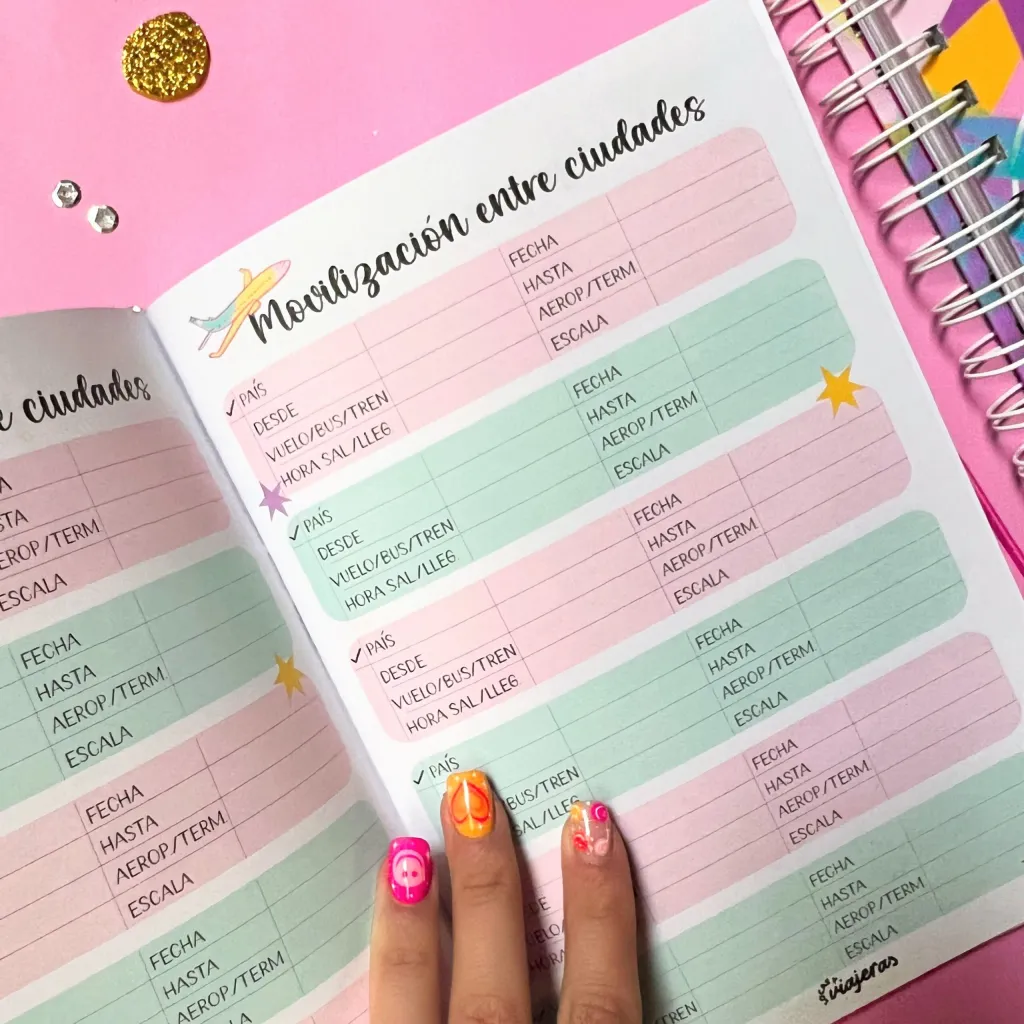 e ciudades
A
STA
EROP/TERM
ESCALA
FECHA
HASTA
AEROP/TERM
ESCALA
FECHA
HASTA
AEROP/TERM
ESCALA
FECHA
HASTA
AEROP/TERM
Movilización entre ciudades
✓ PAÍS FECHA
DESDE HASTA
VUELO/BUS/TREN AEROP/TERM
HORA SAL/LLEG ESCALA
✓ PAÍS FECHA
DESDE HASTA
VUELO/BUS/TREN AEROP/TERM
HORA SAL/LLEG ESCALA
✓ PAÍS FECHA
DESDE HASTA
VUELO/BUS/TREN AEROP/TERM
HORA SAL/LLEG ESCALA
✓ PAÍS FECHA
HASTA
BUS/TREN AEROP/TERM
SAL/LLEG ESCALA
FECHA
DE HASTA
AEROP/TERM
ESCALA
FECHA
HASTA
TREN AEROP/TERM
ESCALA
viajeras